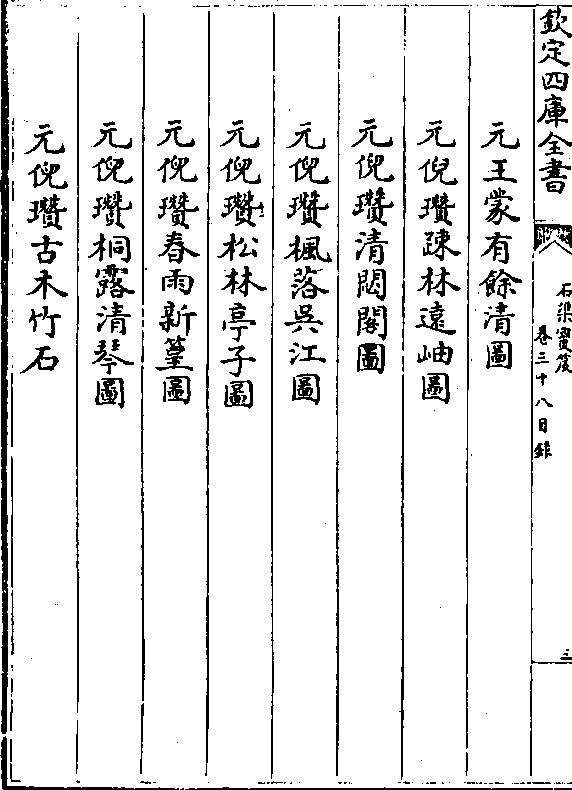 欽定四庫全書
石渠寶笈
卷三十八目錄
三
元王蒙有餘清圖
元倪瓚疎林遠岫圖
元倪瓚清閟閣圖
元倪瓚楓落吳江圖
元倪瓚松林亭子圖
元倪瓚春雨新篁圖
元倪瓚桐露清琴圖
元倪瓚古木竹石